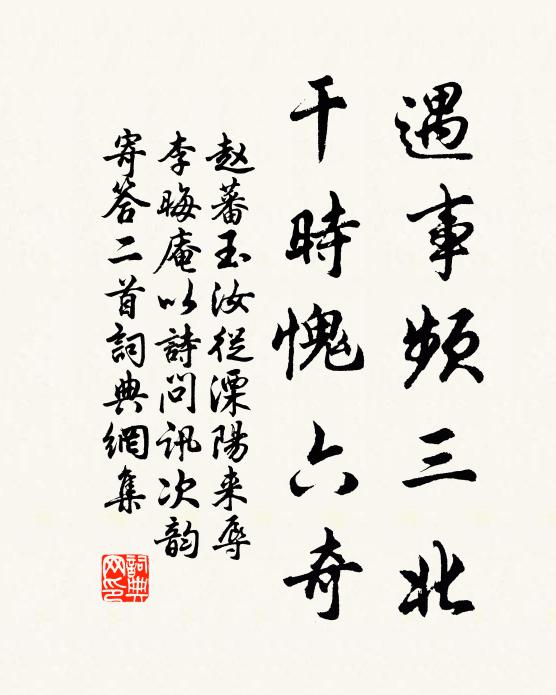 遇事頻三北
干時愧六奇
赵蕃玉汝從溧陽来辱
李晦庵以詩問訊次韵
寄答二首詞典網集
詞典
网印